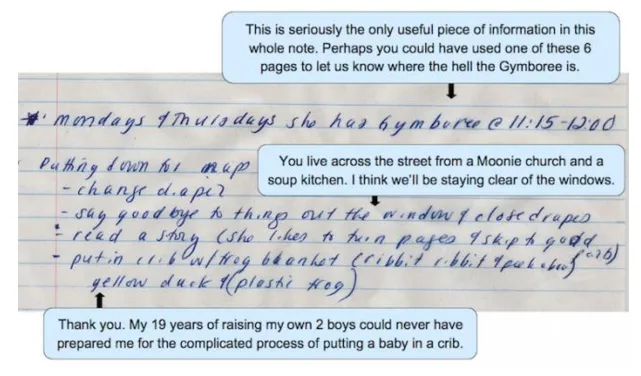 This is seriously the only useful piece of information in this
whole note. Perhaps you could have used one of these 6
pages to let us know where the hell the Gymboree is.
* Mondays & Thursdays she has Gymboree @ 11:15-12:00
Putting down for nap
You live across the street from a Moonie church and a
soup kitchen. I think we'll be staying clear of the windows.
- change diaper
- say goodbye to things out the window & close drapes
- read a story (she likes to turn pages & skip to good parts)
- put in crib w/frog blanket (ribbit ribbit & peekaboo)
yellow duck & (plastic frog)
Thank you. My 19 years of raising my own 2 boys could never have
prepared me for the complicated process of putting a baby in a crib.